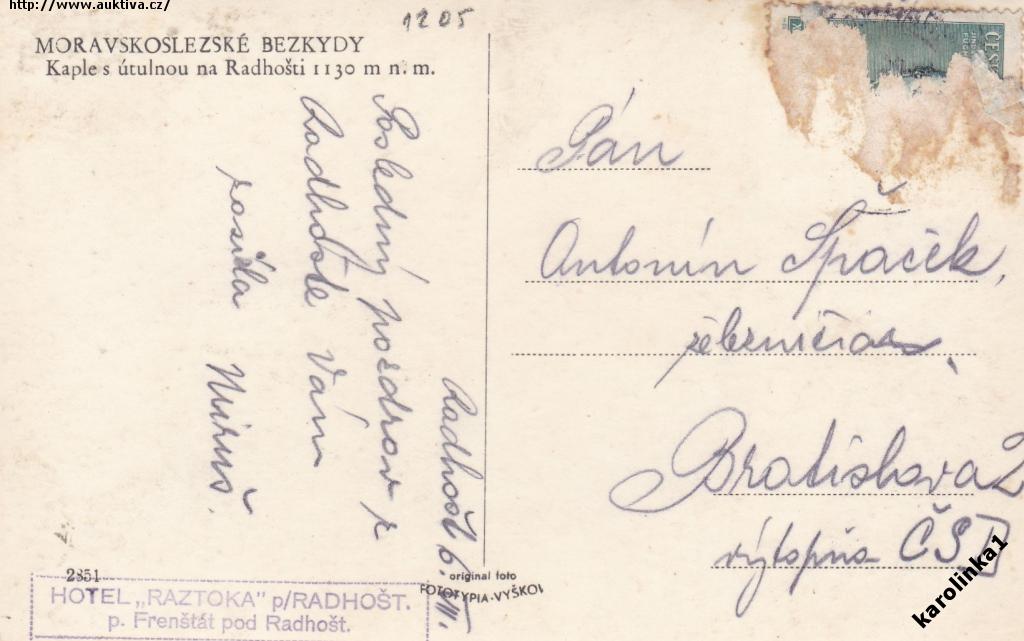 http://www.auktiva.cz/
1205
MORAVSKOSLEZSKÉ BEZKYDY
Kaple s útulnou na Radhošti 1130 m n. m.
ČES
Radhošť 6. VII.
Posledný pozdrav z
Radhoště Vám
posiela Miruš.
Pán
Antonín Špaček,
železničiar,
Bratislava 2
výtopňa ČSD
2851
HOTEL „RAZTOKA" p/RADHOŠT.
p. Frenštát pod Radhošt.
original foto
FOTOTYPIA-VYŠKOV
karolinka1